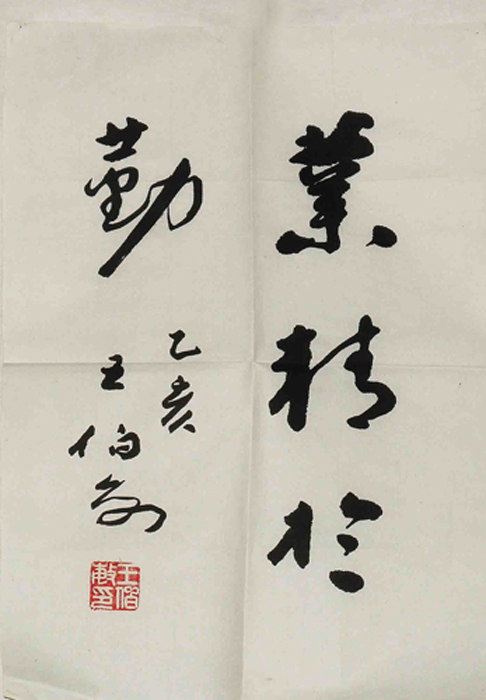 業精於
勤
乙亥
王伯敏
王伯敏印